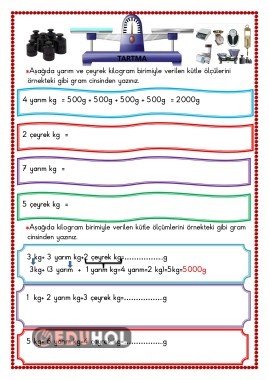 TARTMA
*Aşağıda yarım ve çeyrek kilogram birimiyle verilen kütle ölçülerini
örnekteki gibi gram cinsinden yazınız.
4 yarım kg = 500g + 500g + 500g + 500g = 2000g
2 çeyrek kg =
7 yarım kg =
5 çeyrek kg =
*Aşağıda kilogram birimiyle verilen kütle ölçümlerini örnekteki gibi gram
cinsinden yazınız.
3 kg+ 3 yarım kg+2 çeyrek kg=................g
3kg+ (3 yarım + 1 yarım kg=4 yarım=2 kg)=5kg=5000g
1 kg+ 2 yarım kg+3 çeyrek kg=................g
EDUHOL
5 kg+ 6 yarım kg+4 çeyrek kg=................g